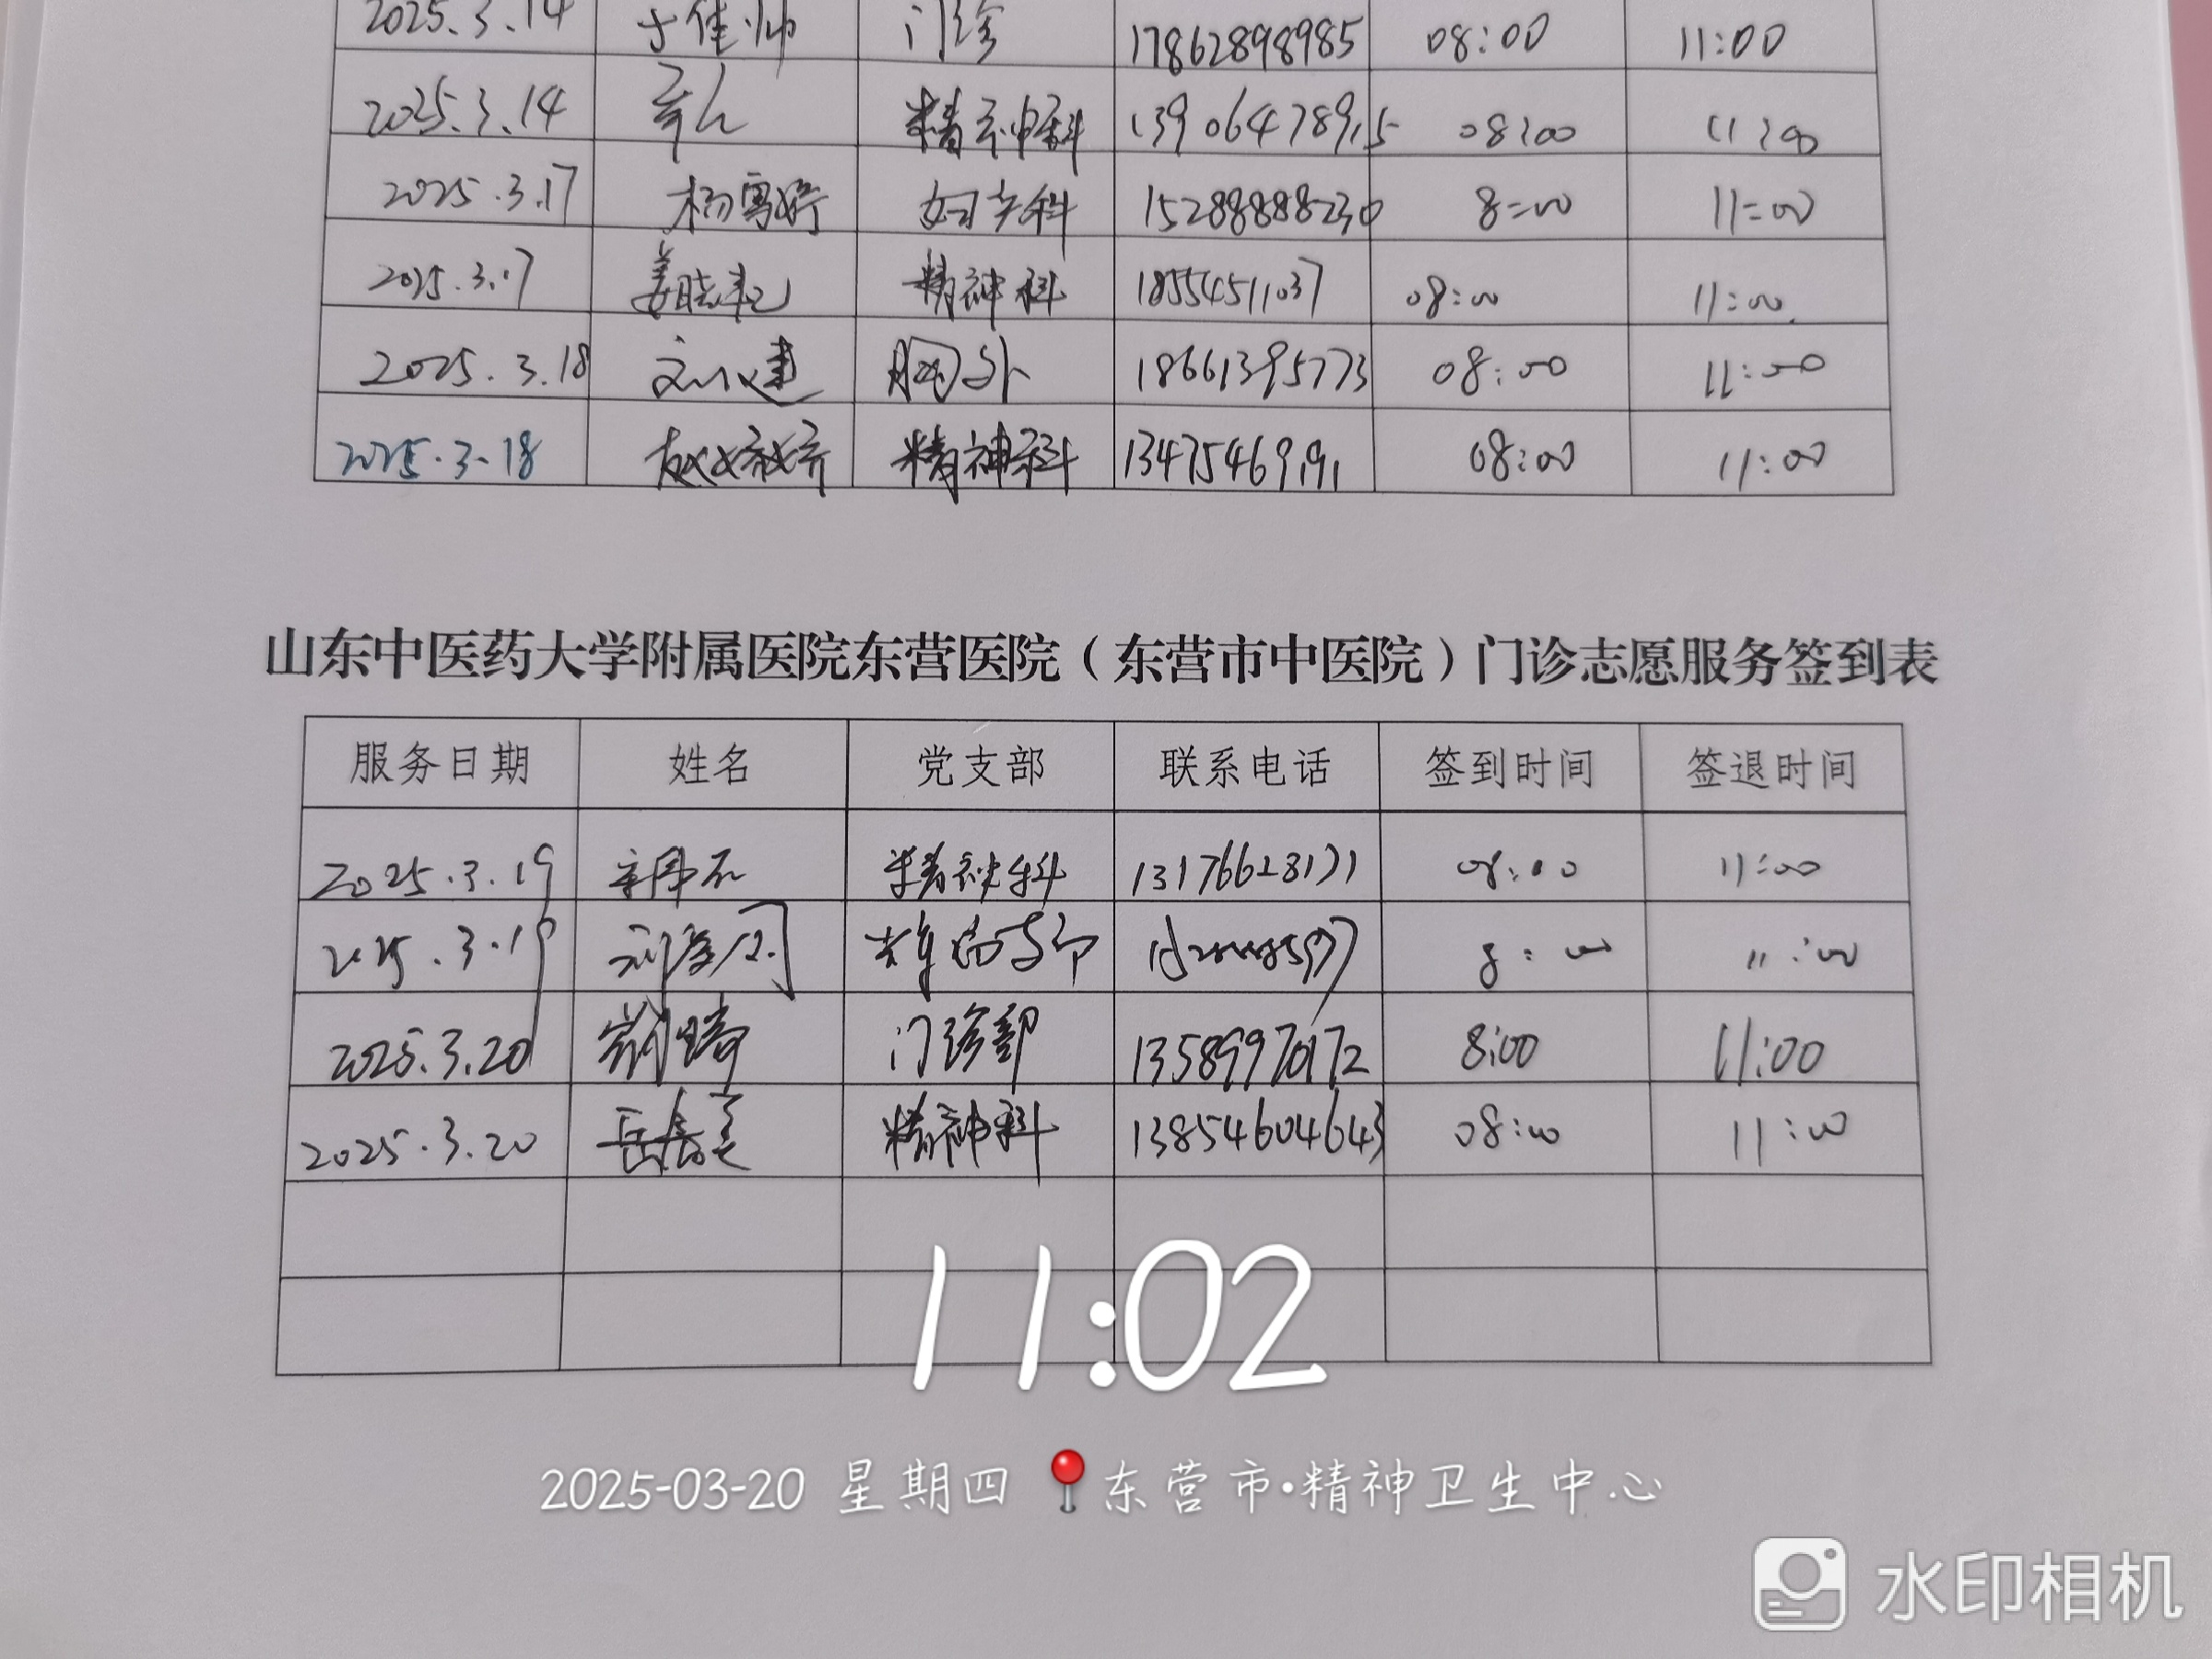 2025.3.14 于佳帅 门诊 17862898985 08:00 11:00
2025.3.14 精神科 13906478915 08:00 11:00
2025.3.17 杨雪婷 妇产科 15288888230 8:00 11:00
2025.3.17 姜晓 精神科 18554511037 08:00 11:00
2025.3.18 刘建 胸外 18661395773 08:00 11:00
2025.3.18 赵婷婷 精神科 13475469191 08:00 11:00
山东中医药大学附属医院东营医院（东营市中医院）门诊志愿服务签到表
服务日期 姓名 党支部 联系电话 签到时间 签退时间
2025.3.19 精神科 13176628171 08:00 11:00
2025.3.19 8:00 11:00
2025.3.20 门诊部 13589970172 8:00 11:00
2025.3.20 岳春美 精神科 13854604643 08:00 11:00
11:02
2025-03-20 星期四 东营市·精神卫生中心
水印相机